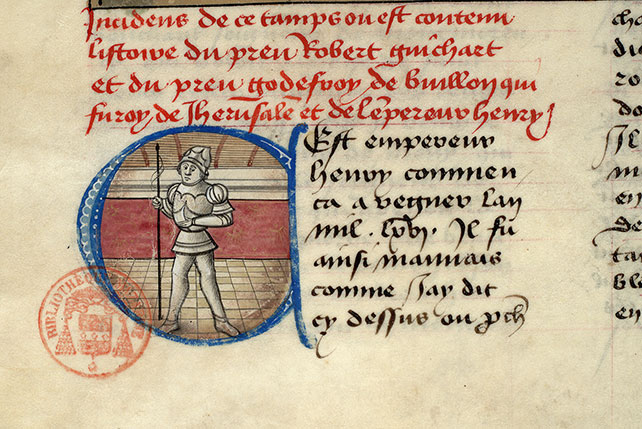 Incidens de ce tamps ou est contenu
listowe du preu Robert guichart
et du preu godefroy de buillon qui
fu roy de Jherusalē et de lēpereur henry
Cest empereur
henry commen
ca a regner lan
mil . lxvi . Il fu
ainsi mauuais
comme Jay dit
cy dessus ou
che
dic
ro
do
Il
en
de
tan
ble
en
BIBLIOTHE